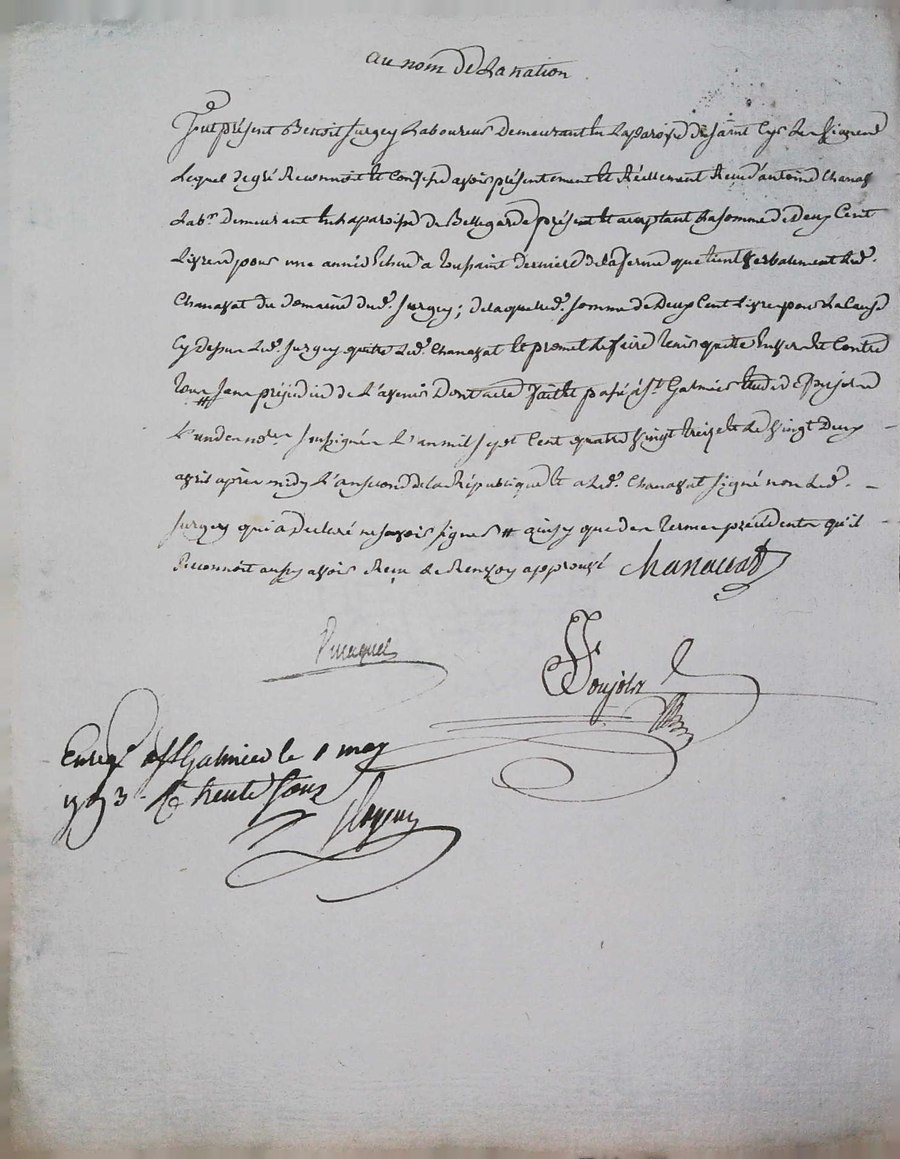 au nom de la nation
fut présent Benoit Surgey Laboureur demeurant en la paroisse de saint Cyr les vignes
Lequel de gré Reconnoit et Confesse avoir présentement et Réellement Reçu d'antoine Chanavat
Labr. demeurant en la paroisse de Bellegarde présent et acceptant la somme de deux Cent
Livres pour une année Echue a toussaint derniere de la ferme que tient verbalement led.
Chanavat du domaine dud. Surgey; de laquelle d. somme de deux Cent Livres pour la Cause
Cy dessus led. Surgey quitte led. Chanavat et promet le faire tenir quitte Envers et Contre
tous # sans préjudice de l'avenir dont acte fait et passé à St. Galmier Etude de Poujols
L'un des nores. soussignés L'an mil sept Cent quatre vingt treize et le vingt deux
avril après midy L'an second de la République et a led. Chanavat signé non led.
Surgey qui a déclaré ne savoir signer # ainsy que des termes précédents qu'il
Reconnoit aussy avoir Reçu le Renvoy approuvé Chanavat
Poujols
Enregé. à St Galmier le 1 may
1793 - R trente sous